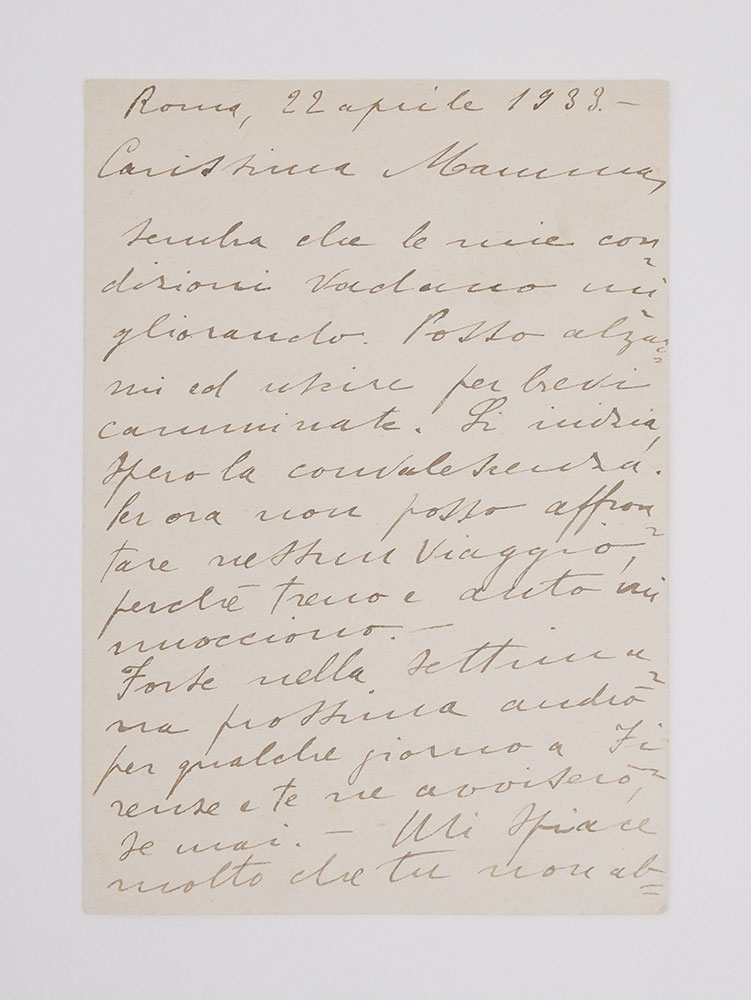 Roma, 22 aprile 1933.–
Carissima Mamma,
sembra che le mie con=
dizioni vadano mi=
gliorando. Posso alzar=
mi ed uscire per brevi
camminate. Si inizia,
spero la convalescenza.
Per ora non posso affron=
tare nessun viaggio,
perchè treno e auto mi
nuocciono.–
Forse nella settima=
na prossima andrò
per qualche giorno a Fi=
renze e te ne avviserò,
se mai.– Mi spiace
molto che tu non ab=